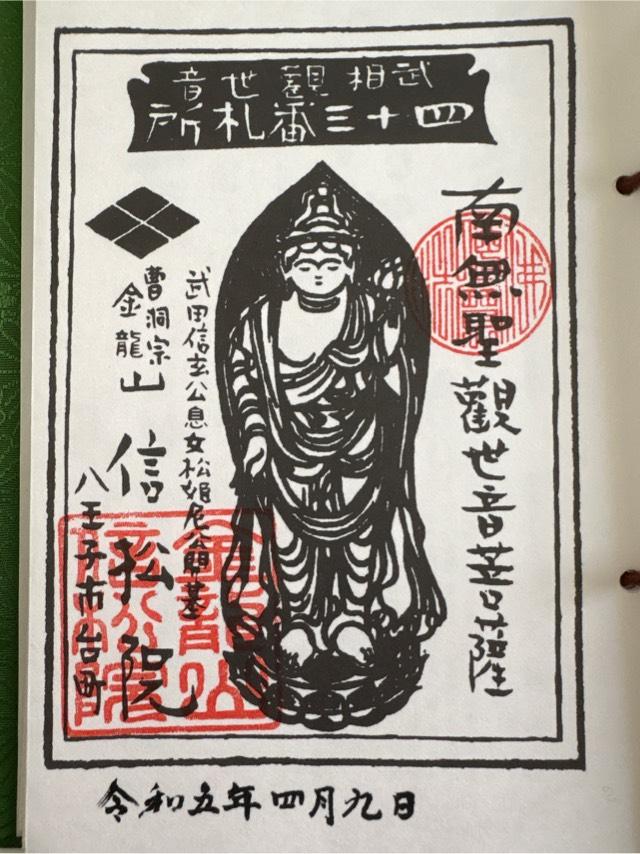 武相觀世音
四十三番札所
南無聖觀世音菩薩
武田信玄公息女松姫尼公開基
曹洞宗
金龍山 信松院
八王子市台町
令和五年四月九日